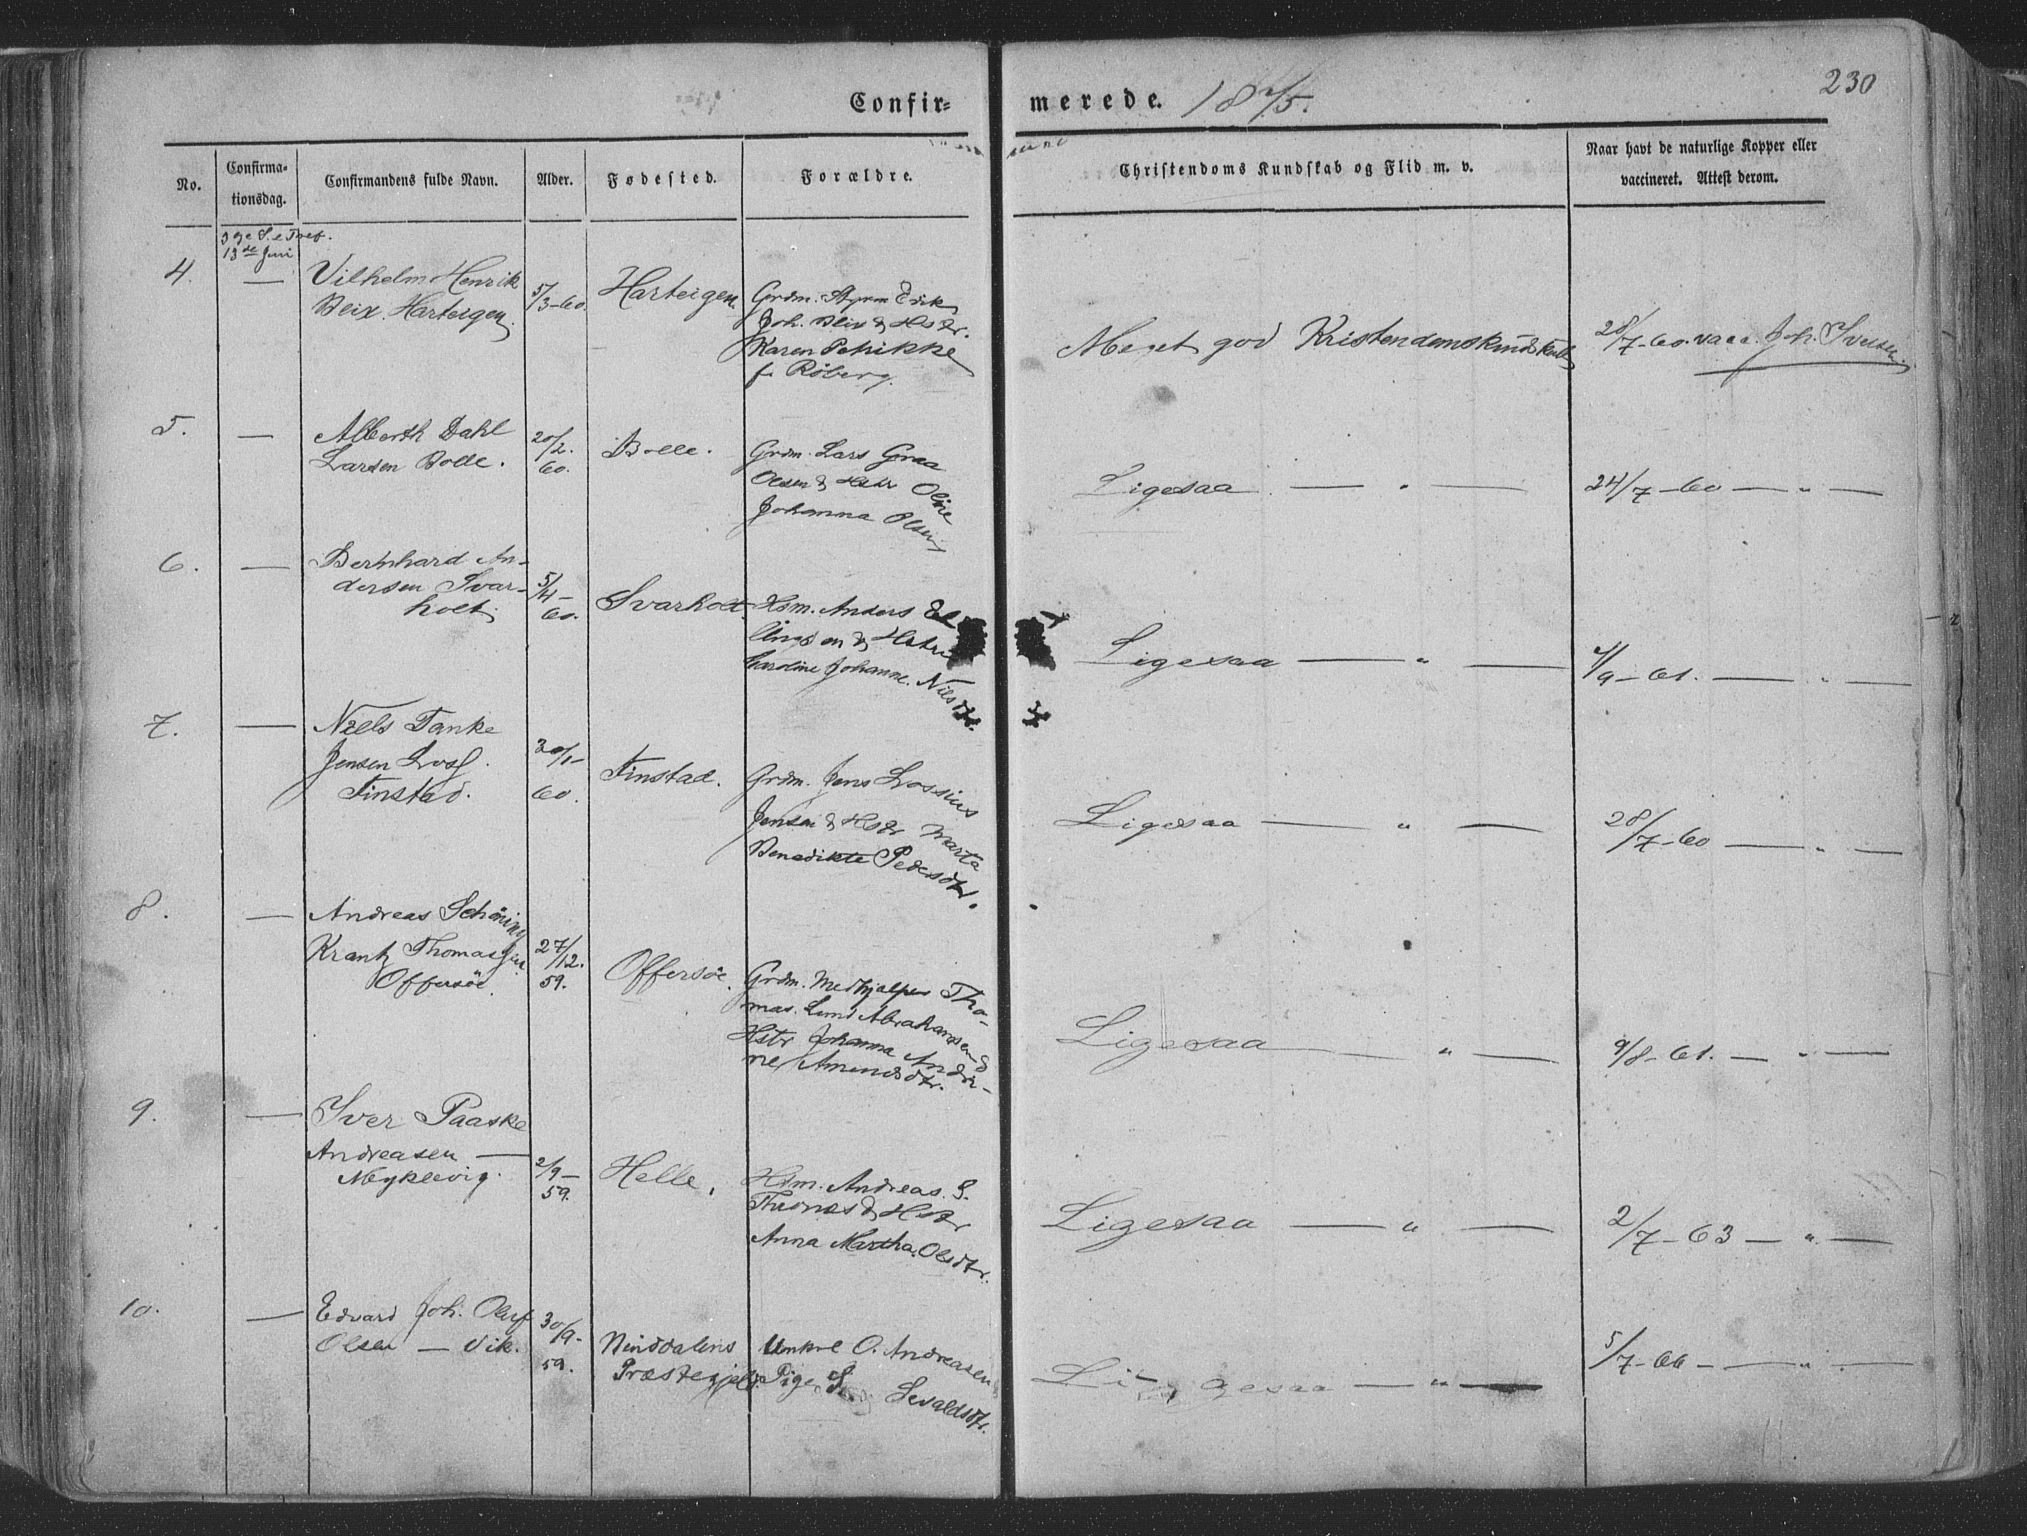 230
Confir= merede. 1875.
No.
Confirma-
tionsdag.
Confirmandens fulde Navn.
Alder.
Fødested.
Forældre.
Christendoms Kundskab og Flid m. v.
Naar havt de naturlige Kopper eller
vaccineret. Attest derom.
3de S. e Tref.
13de Juni
4. — Vilhelm Henrik
Bleix Harteigen.
5/3-60.
Harteigen.
Grdm. Erik
Joh. Blix & Hstr.
Karen Petrikke
f. Röberg.
Meget god Kristendomskundskab
28/7-60. vacc. Joh. Iversen.
5. — Alberth Dahl
Larsen Bolle.
20/2.
60.
Bolle.
Grdm. Lars Graa
Olsen & Hstr Oline
Johanna Olsen
Ligesaa — " —
24/7-60 — " —
6. — Bernhard An-
dersen Svar-
holt.
5/4-
60.
Svarholt.
Hsm. Anders El
lingsen & Hstr
Karoline Johanne Nilsdtr.
Ligesaa — " —
/9-61. — " —
7. — Niels Tanke
Jensen Loss.
Finstad.
30/1-
60.
Finstad.
Grdm. Jens Lossius
Jensen & Hstr Marta
Benedikte Pedersdtr.
Ligesaa — " —
28/7-60 — " —
8. — Andreas Schöning
Krantz Thomassen
Offersöe.
27/12.
59.
Offersöe.
Grdm. Medhjælper Tho-
mas Lund Abrahamsen &
Hstr Johanna Andri-
ne Amundsdtr.
Ligesaa — " —
9/8-61. — " —
9. — Iver Paaske
Andreasen —
Myklevig.
2/9-
59.
Helle.
Hsm. Andreas S.
Thomas & Hstr
Anna Martha Olsdtr.
Ligesaa — " —
2/7-63 — " —
10. — Edvard Joh. Oluf
Olsen — Vik.
30/9-
59.
Ninddalens
Præstegjeld.
Unkrl O. Andreasen
Pige S. Sevaldsdtr.
Ligesaa — " —
5/7-66 — " —